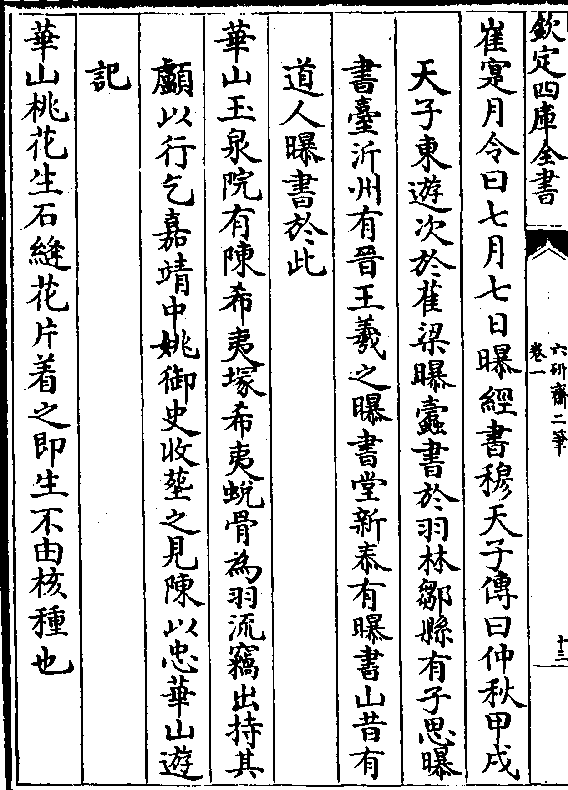 欽定四庫全書
六研齋二筆
卷一
十三
崔寔月令曰七月七日曝經書穆天子傳曰仲秋甲戌
天子東遊次於雀梁曝蠹書於羽林鄒縣有子思曝
書臺沂州有晉王羲之曝書堂新泰有曝書山昔有
道人曝書於此
華山玉泉院有陳希夷塚希夷蛻骨為羽流竊出持其
顱以行乞嘉靖中姚御史收塟之見陳以忠華山遊
記
華山桃花生石縫花片着之即生不由核種也